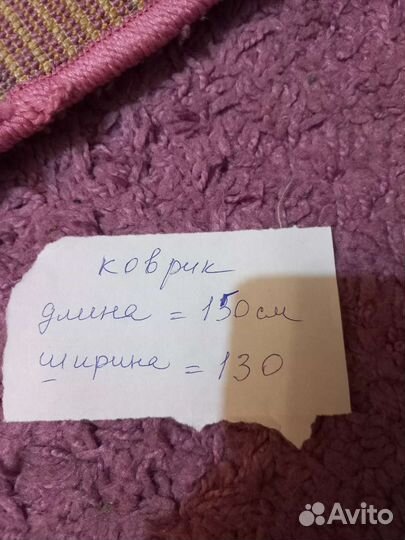 коврик
длина = 150 см
ширина = 130
Avito